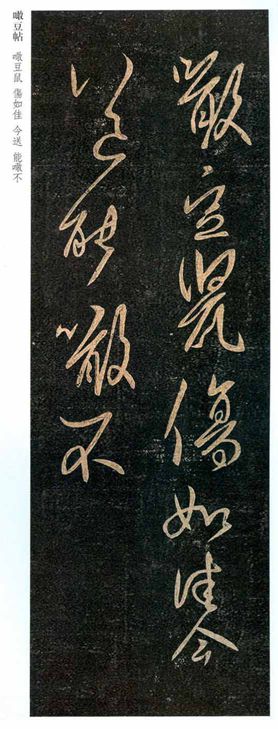 噉豆帖 噉豆鼠 傷如佳 今送 能噉不
噉豆鼠傷如佳今
送能噉不